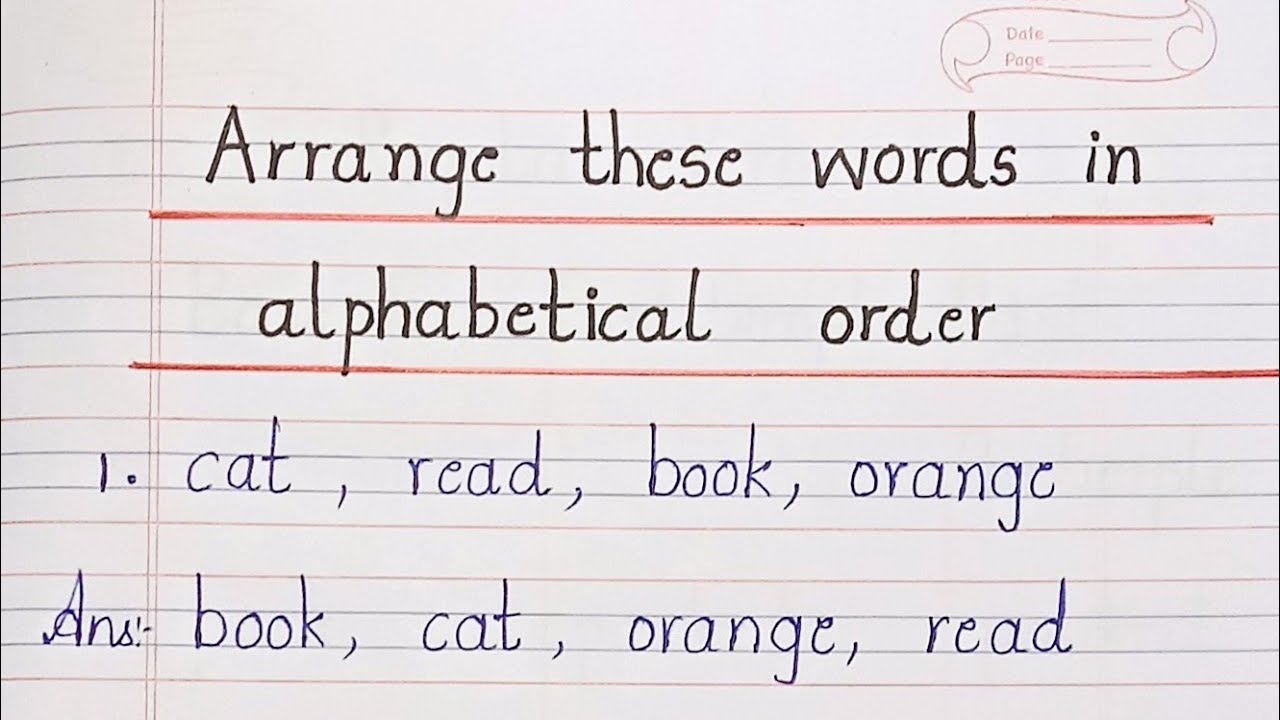 Date
Page
Arrange these words in
alphabetical order
1. cat, read, book, orange
Ans:- book, cat, orange, read